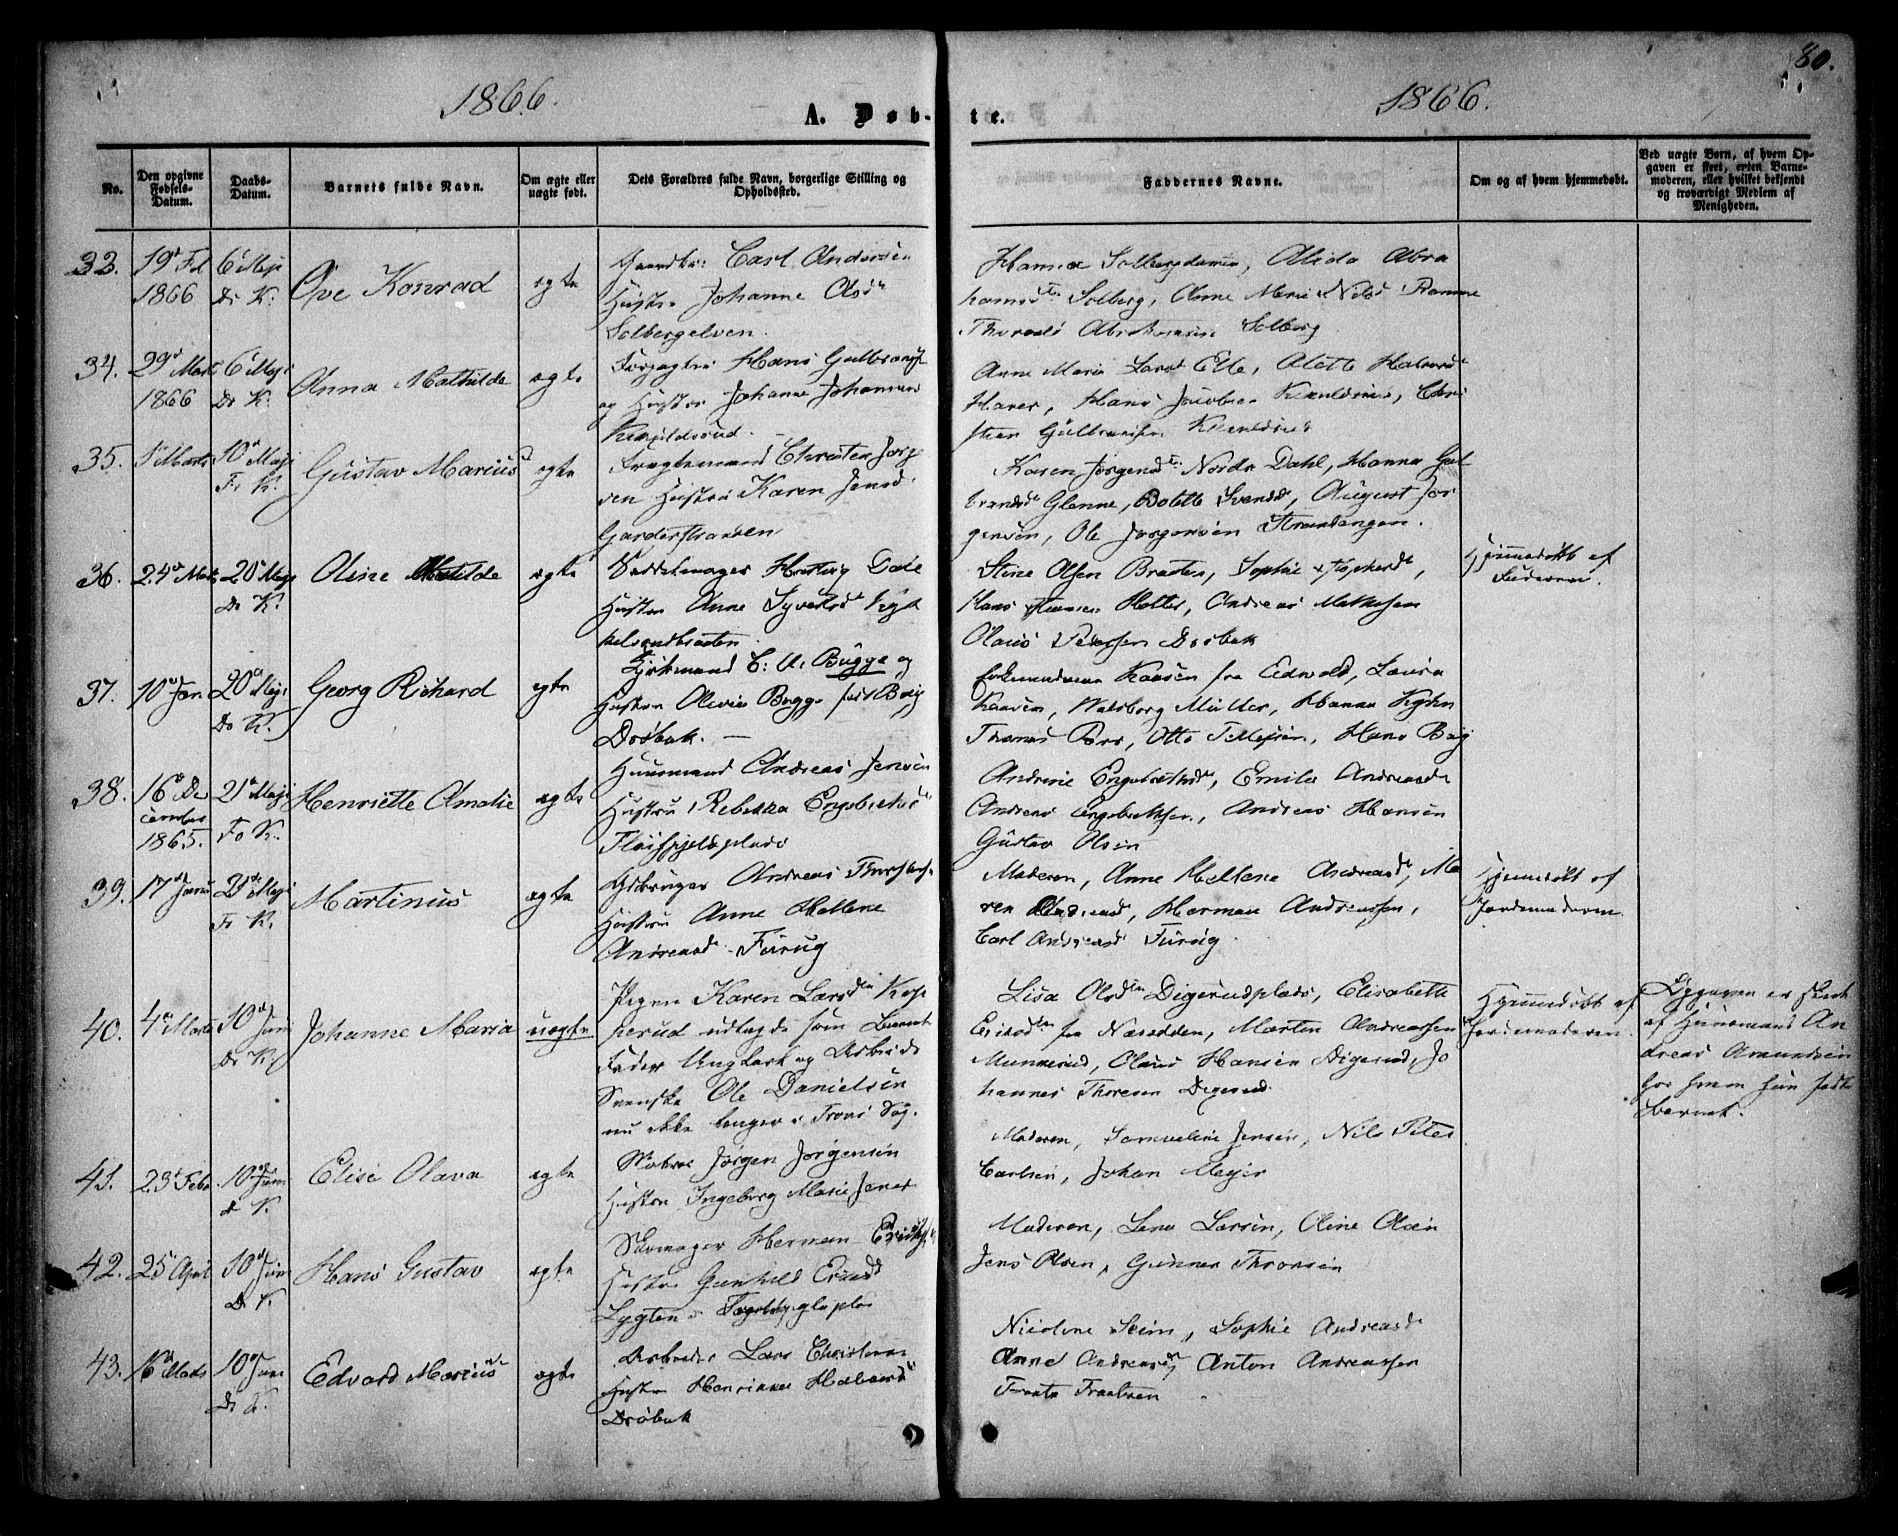 80.
1866.
A. Døb-
te.
1866.
No.
Den opgivne Fødsels-Datum.
Daabs-Datum.
Barnets fulde Navn.
Om ægte eller uægte født.
Dets Forældres fulde Navn, borgerlige Stilling og Opholdssted.
Faddernes Navne.
Om og af hvem hjemmedøbt.
Ved uægte Børn, af hvem Opgaven er skeet, enten Barnemoderen, eller hvilket bekjendt og troværdigt Medlem af Menigheden.
33. 19de Fe 6te Maji
1866 Dr K. Ove Konrad egte
Carl Andersen
Hustru Johanne Olsd
Solbergelven.
Hanna Alida Abra
hamsd Solberg, Anne Marie Nilsd
Abrahamsen Solberg
34. 29de Marts 6te Maji
1866 Dr K. Anna Mathilde egte
Hans Gulbrands
og Hustru Johanne Johannes
Anne Marie Larsd Elle, Alette Halvorsd
Haver, Hans Jacobsen Chri
stian Gulbrandsen
35. 1ste Marts 10de Maji
Fr K. Gustav Marius egte
Christen Jørg
sen Hustru Karen Jensd
Garderstranden
Karen Jørgensd Nordre Dahl, Hanna Gul
brandsd Glenne, Bolette Svendsd, August Jør
gensen, Ole Jørgensen Strandengen.
36. 24de Marts 20de Maji
Dr K. Oline Matilde egte
Hartvig Dale
Hustru Anne Syversd
Stine Olsen Braaten, Sophie
Hans Holter, Andreas Mathesen
Olaus Pedersen Drøbak
Hjemmedøbt af
Faderen.
37. 10de Jan 20de Maji
Dr K. Georg Richard egte
C: A. Bugge og
Hustru Olivia Bugge født Boij
Drøbak. —
Kaasen fra Eidvold, Laura
Kaasen, Valborg Müller, Hanna Kyhn
Thomas Parr, Otto Tellefsen, Hans Boij
38. 16de De
cember
1865. 21de Maji
Fr K. Henriette Amalie egte
Huusmand Andreas Jensen
Hustru Rebekka Engebretsd
Fløisfjeldsplads
Andrine Engebretsd, Emilie Andreasd
Andreas Engebretsen, Andreas Hansen
Gustav Olsen
39. 17de Janu 21de Maji
Fr K. Martinus egte
Gbruger Andreas
Hustru Anne Hellene
Andreasd Furug
Moderen, Anne Hellene Andreasd, Ma
ren Andreasd, Herman Andreassen,
Carl Andreasd Furug.
Hjemmedøbt af
Jordemoderen.
40. 4de Marts 10de Juni
Dr K. Johanne Maria uægte
Pigen Karen Larsd Kop
perud udlagde som Barnets
Fader Ungkarl og Arbeider
Svenske Ole Danielsen
nu ikke længer i Frons Sog.
Lisa Olsd Digerudplads, Elisabeth
Ericsd fra Næsodden, Morten Andreassen
Munkerud, Olaus Hansen Digerud, Jo
hannes Thoresen Digerud.
Hjemmedøbt af
Jordemoderen.
Opgaven er skeet
af Huusmand An
dreas Amundsen
hos hvem hun fødte
barnet.
41. 23de Febr 10de Juni
Dr K. Elise Olava egte
Matros Jørgen Jørgensen
Hustru Ingeborg Marie Jensd
Moderen, Samueline Jensen, Nils Peter
Carlsen, Johan Meyer
42. 25de April 10de Juni
Dr K. Hans Gustav egte
Skomager Herman Eriks
Hustru Gunhild Ericsd
Moderen, Lena Larsen, Oline Olsen
Jens Olsen, Gunner Thronsen
43. 16de Marts 10de Juni
Dr K. Edvard Marius egte
Arbeider Lars Christensen
Hustru Henrikke Halvorsd
Drøbak
Nicoline Stein, Sophie Andreasd
Anne Andreasd, Anton Andreassen